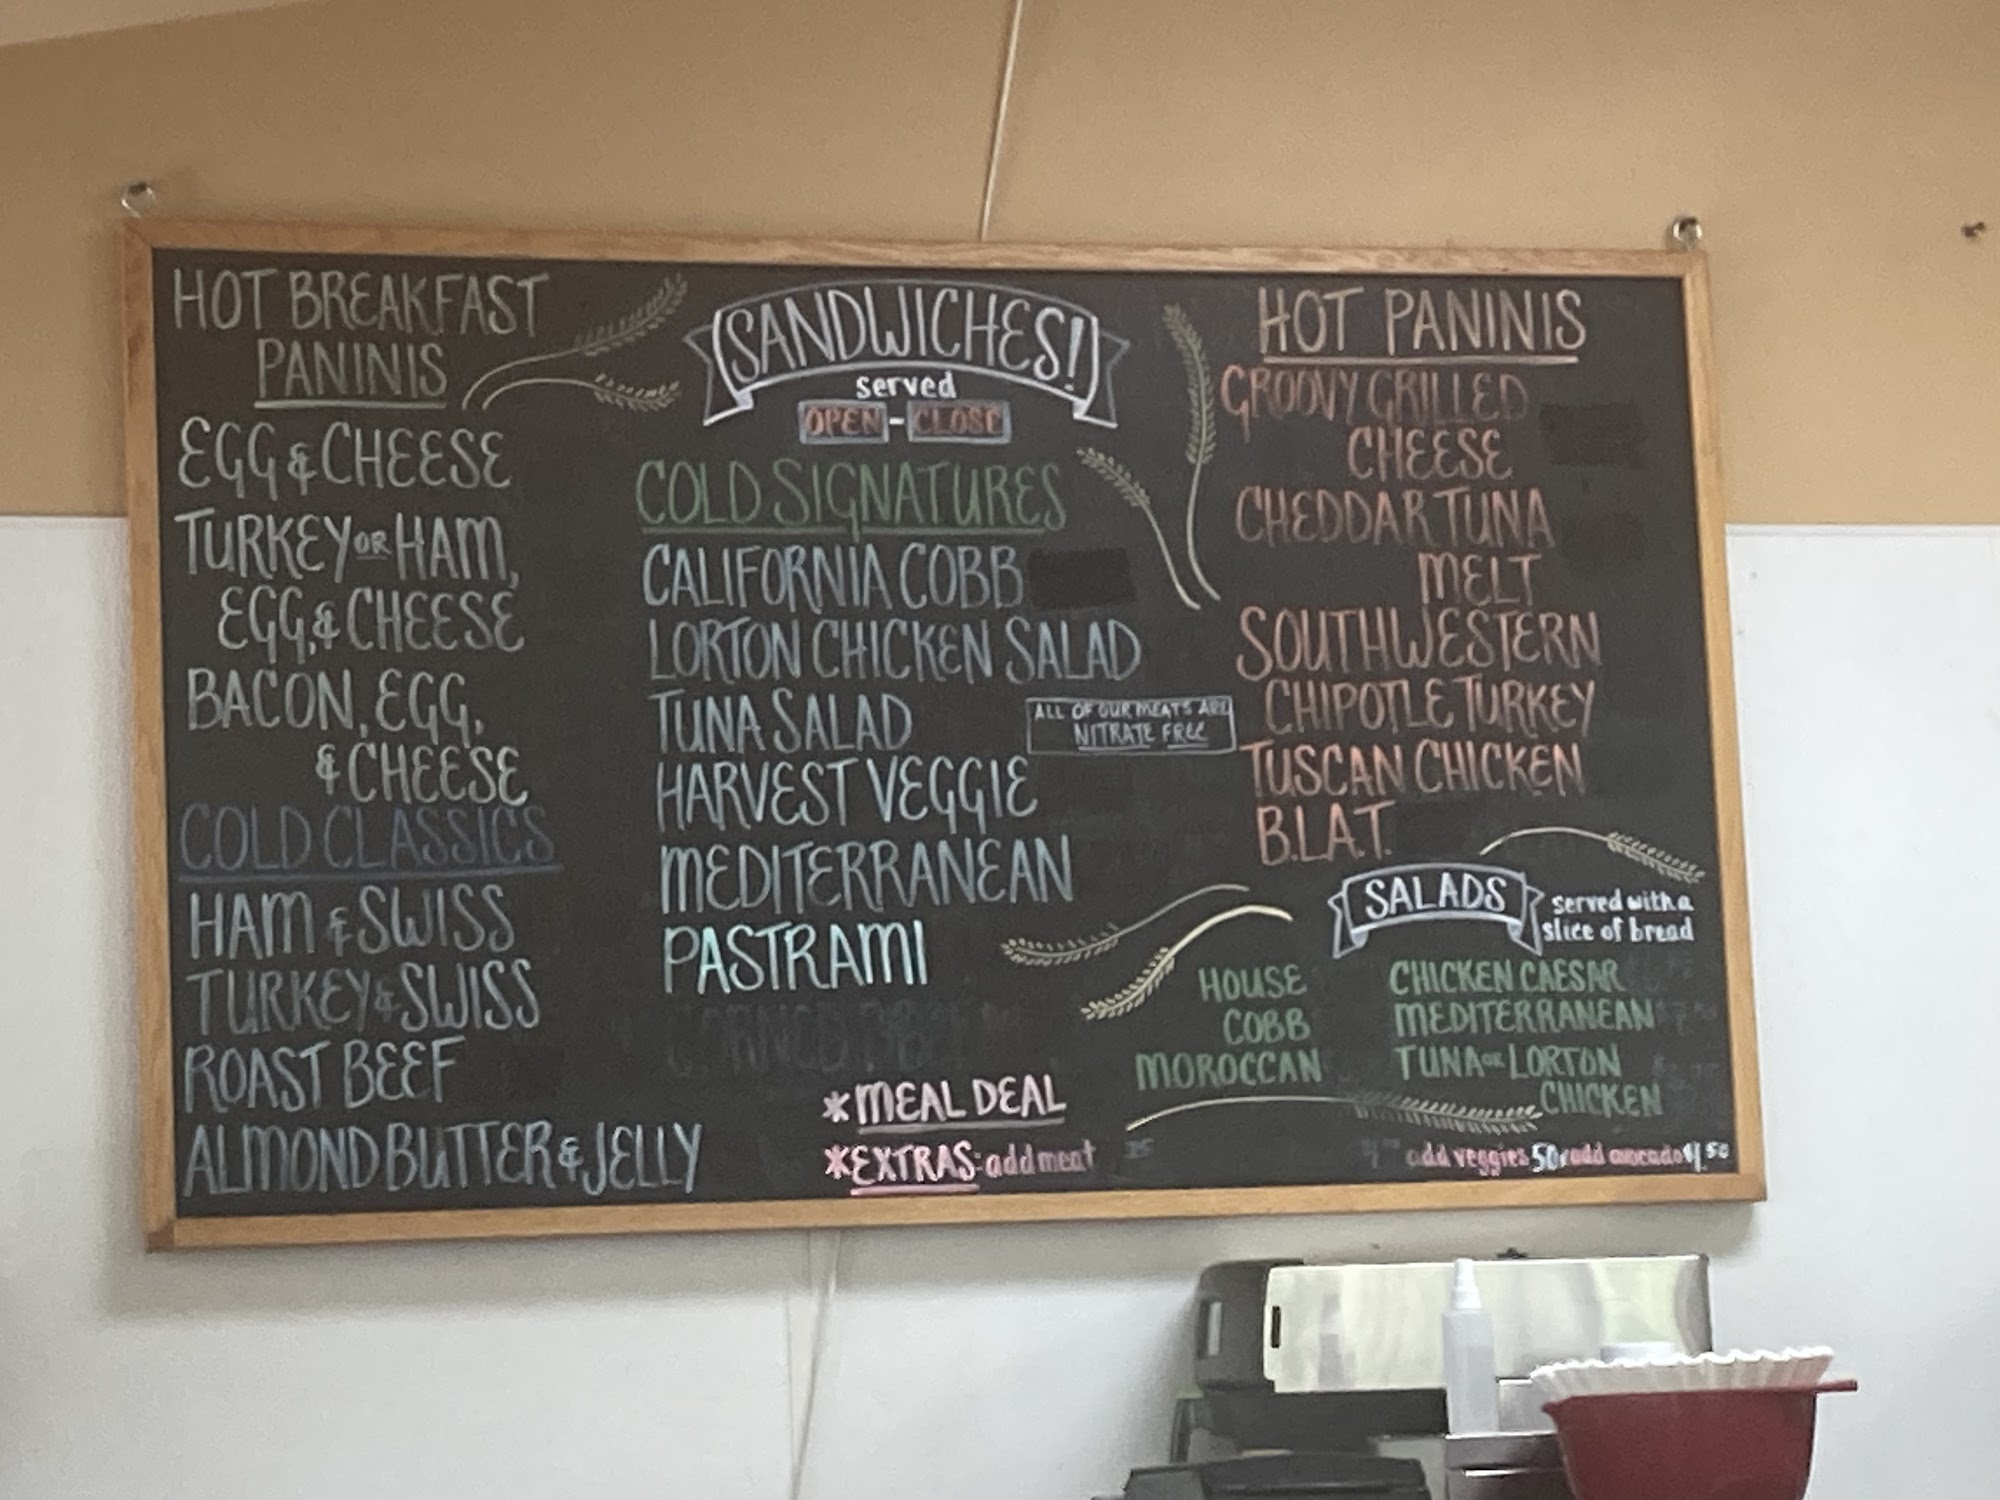 HOT BREAKFAST
PANINIS
EGG & CHEESE
TURKEY OR HAM,
EGG, & CHEESE
BACON, EGG,
& CHEESE
COLD CLASSICS
HAM & SWISS
TURKEY & SWISS
ROAST BEEF
ALMOND BUTTER & JELLY
SANDWICHES!
served
OPEN - CLOSE
COLD SIGNATURES
CALIFORNIA COBB
LORTON CHICKEN SALAD
TUNA SALAD
ALL OF OUR MEATS ARE
NITRATE FREE
HARVEST VEGGIE
MEDITERRANEAN
PASTRAMI
*MEAL DEAL
*EXTRAS: add meat
add veggies 50¢ add avocado $1.50
HOT PANINIS
GROOVY GRILLED
CHEESE
CHEDDAR TUNA
MELT
SOUTHWESTERN
CHIPOTLE TURKEY
TUSCAN CHICKEN
B.L.A.T.
SALADS
served with a
slice of bread
HOUSE
COBB
MOROCCAN
CHICKEN CAESAR
MEDITERRANEAN
TUNA OR LORTON
CHICKEN